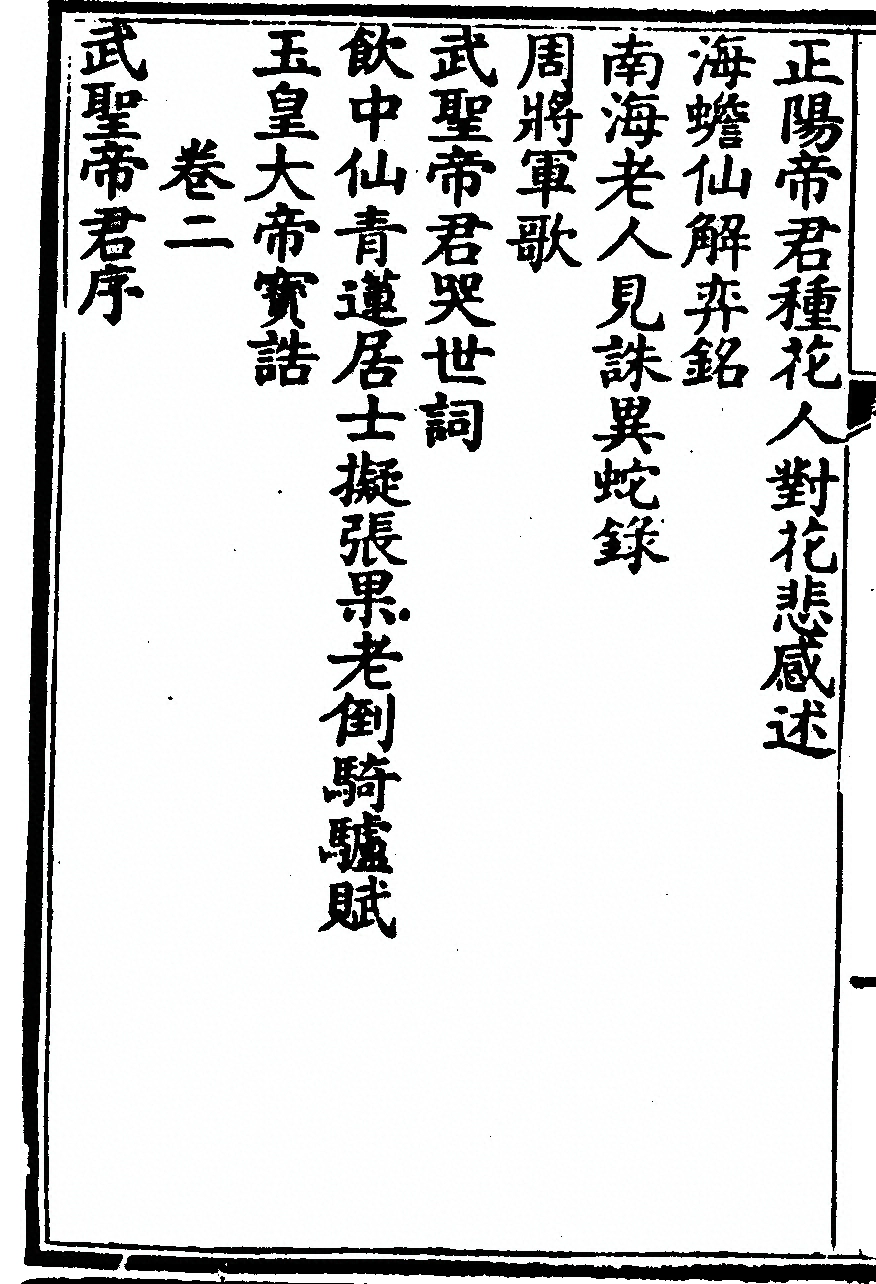 正陽帝君種花人對花悲感述
海蟾仙解弈銘
南海老人見誅異蛇錄
周將軍歌
武聖帝君哭世詞
飲中仙青蓮居士擬張果老倒騎驢賦
玉皇大帝寶誥
卷二
武聖帝君序